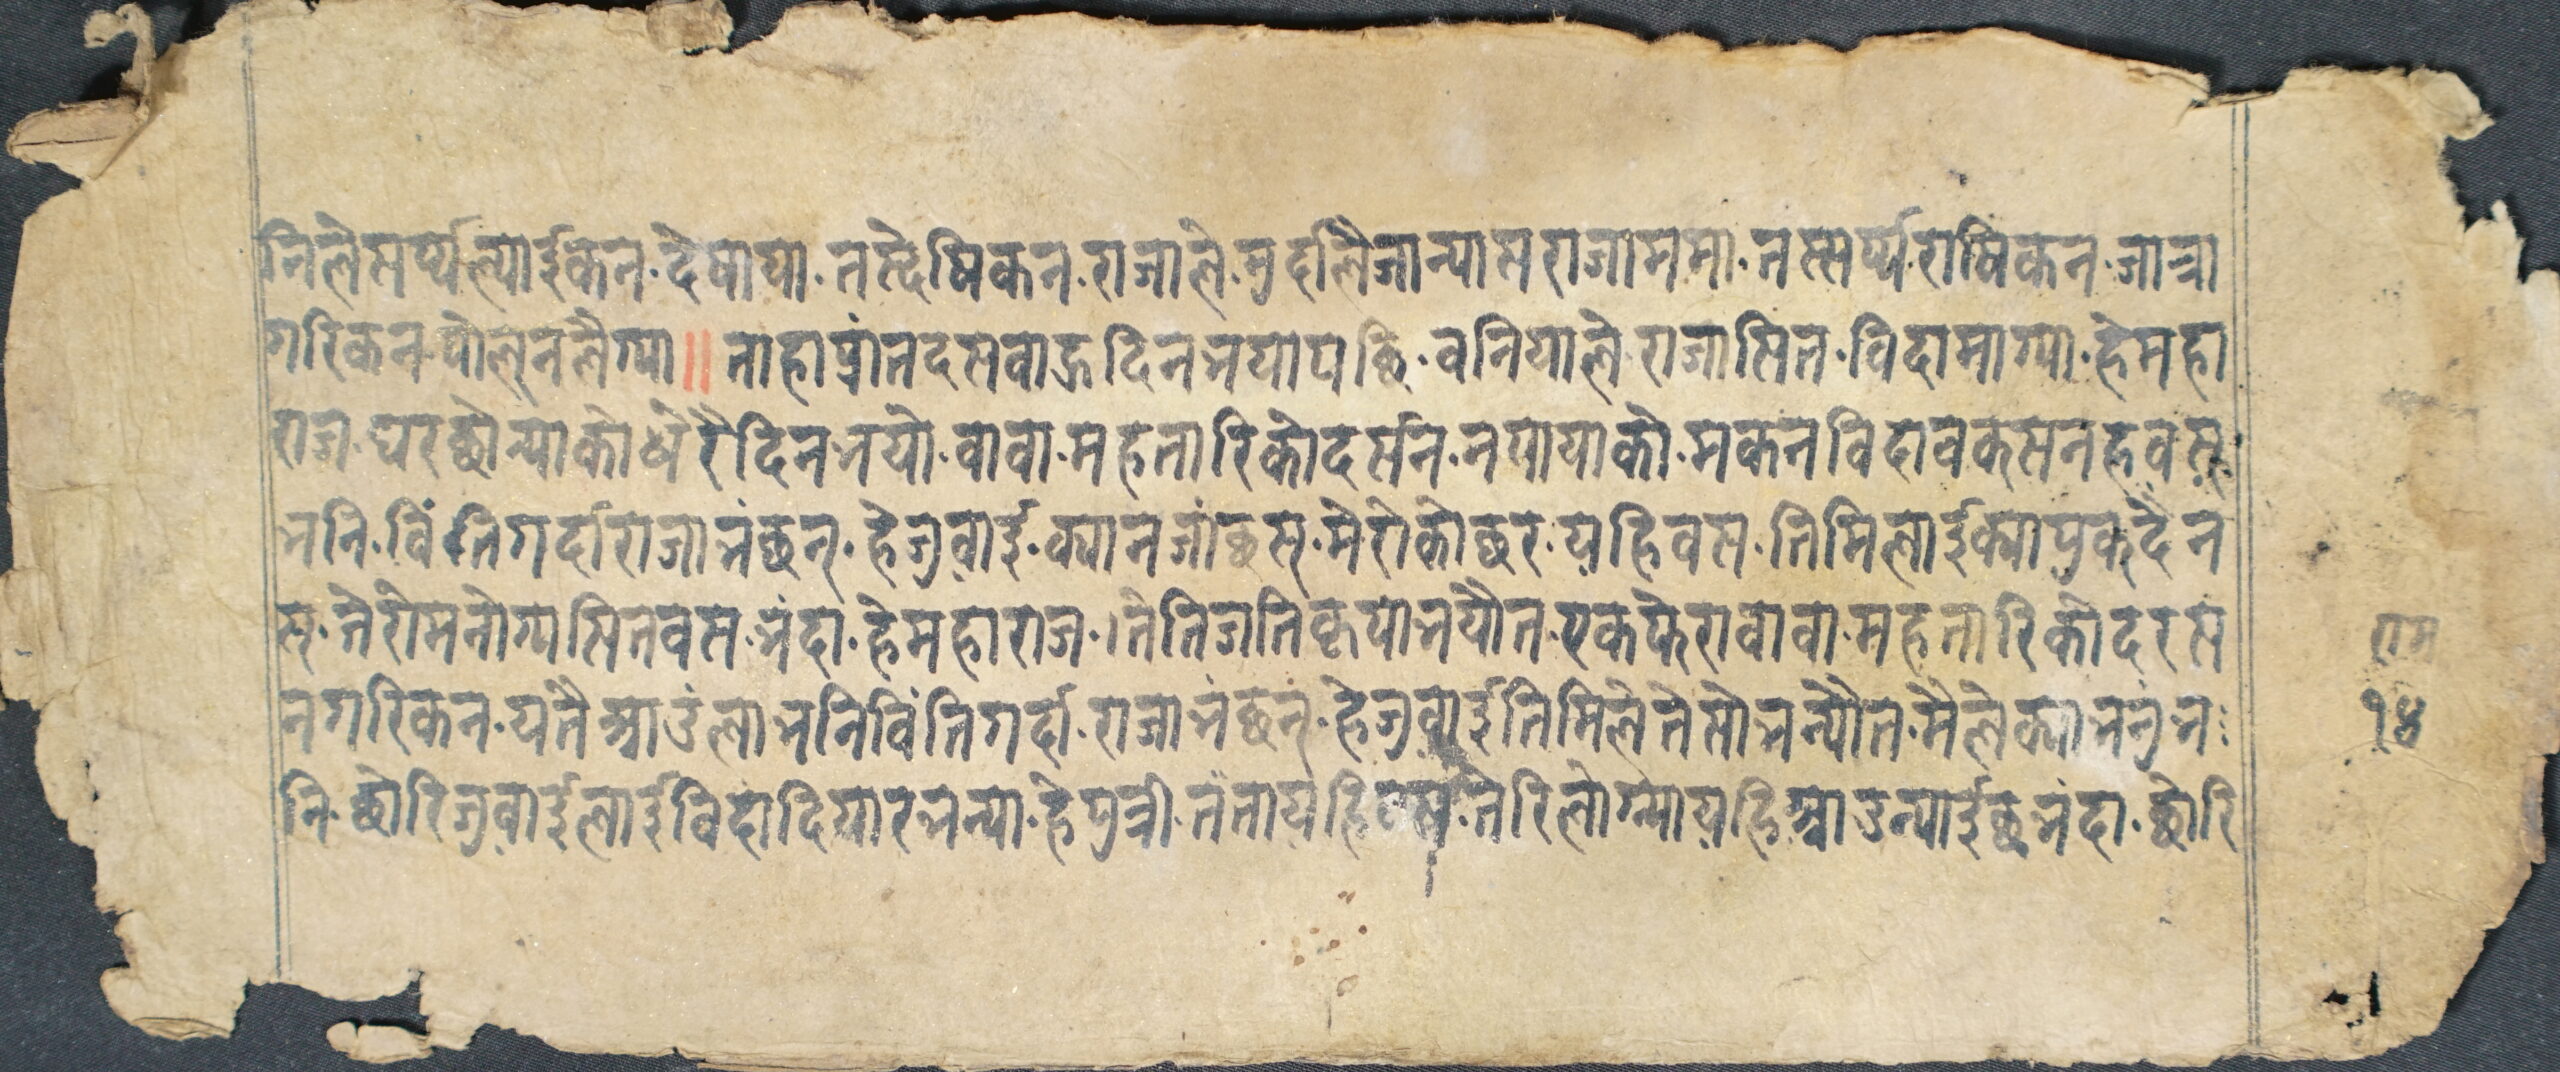 निलेसर्प्पल्याईकन·देषाया·तस्देषिकन·राजाले·मुदलिजान्यासराजाममा·तस्सर्प्पराषिकन·जात्रा
गरिकन·पोलनलैग्या॥ताहाप्रांतदसवाह्रदिनभयापछि·वनियाले·राजासित·विदामाग्या·हेमहा
राज·घरछोन्याकोधेरैदिनभयो·वावा·महतारिकोदर्सन·नपायाको·मकनविदावकसनहवस्
भनि·विंतिगर्दाराजाभंछन्·हेजुवाई·क्यानजांछस्·मेरोकोछर·यहिवस·तिमिलाईक्यापुक्दैन
स्·तेरोमनोग्यसितवस·भंदा·हेमहाराज·तेतिजतिकृपाभयौत·एकफेरावावा·महतारिकोदरस
नगरिकन·यंतैआउंलाभनिविंतिगर्दा·राजाभंछन्·हेजुवाईतिमिलेतेसोभन्यौत·मैलेक्याभनुंभ
नि·छोरिजुवाईलाईविदादियारभन्या·हेपुत्री·तंतायहिवस·तेरिलोग्न्यायहिआउन्याईछभंदा·छोरि
राम
१४